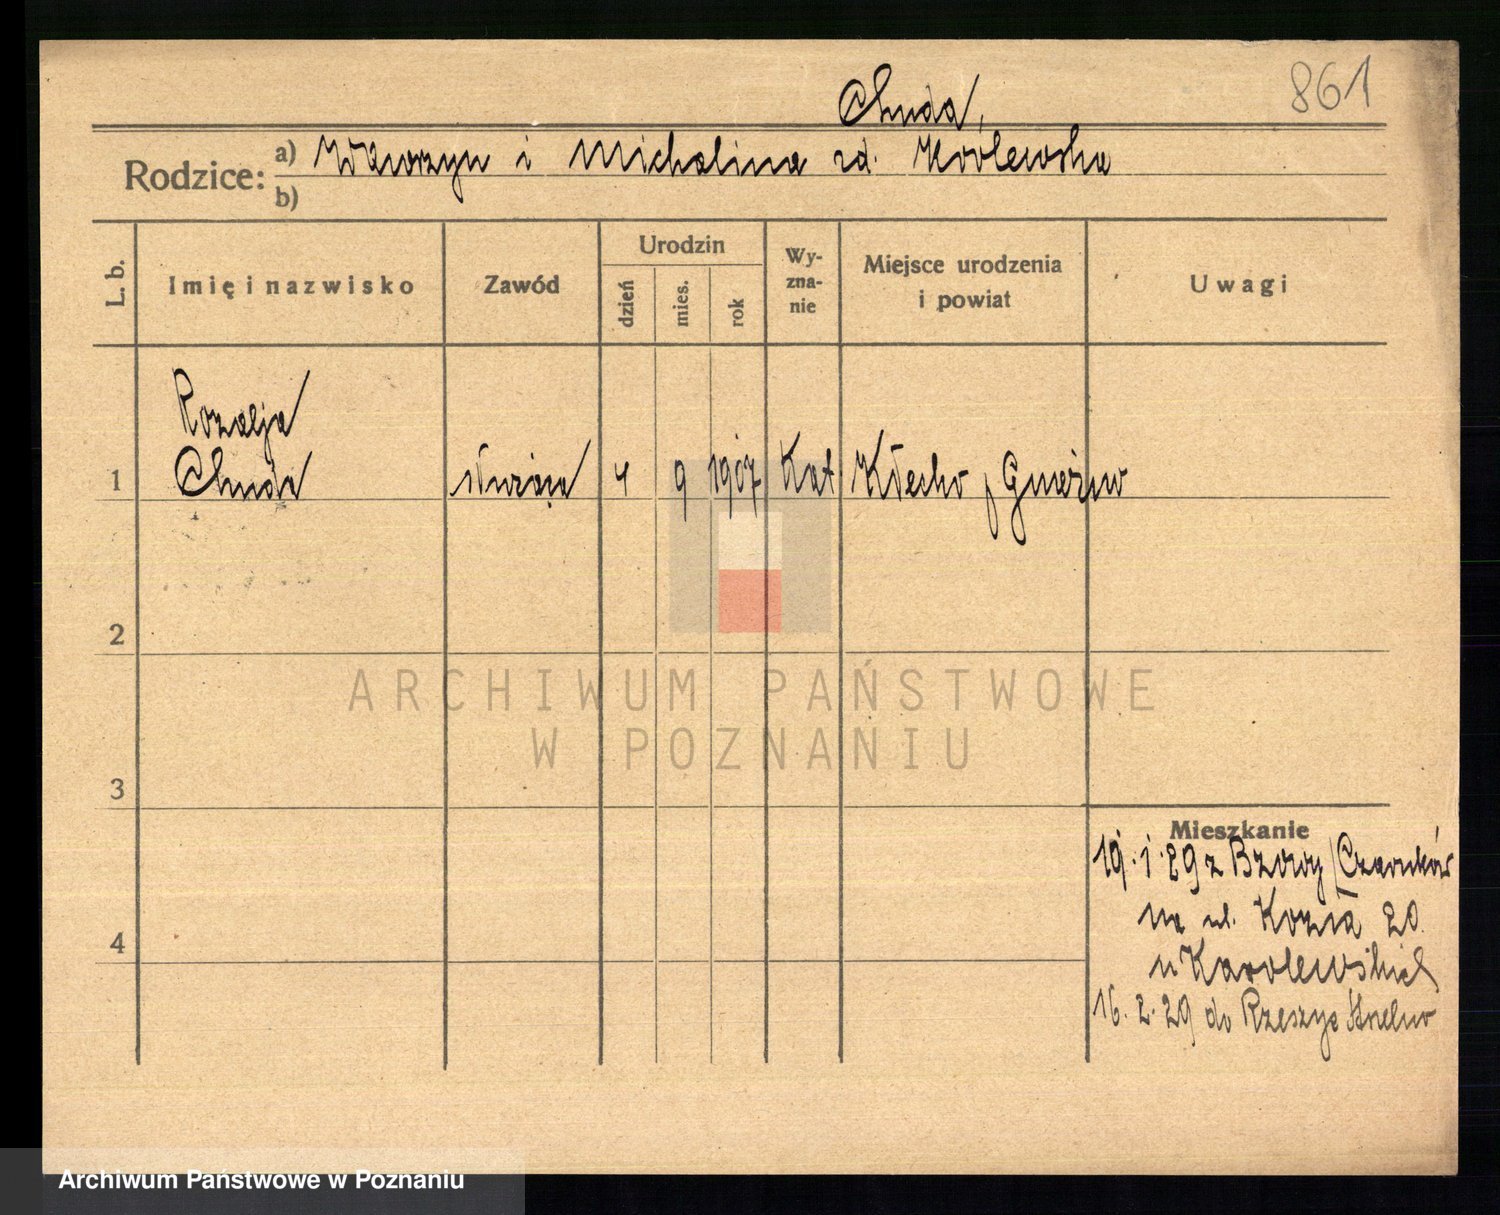 861
Chuda,
Rodzice: a) Wawrzyn i Michalina zd. Królewska
b)
L. b. Imię i nazwisko Zawód Urodzin dzień mies. rok Wy-zna-nie Miejsce urodzenia i powiat Uwagi
Rozalja
1 Chuda służąca 4 9 1907 Kat Kłecko p Gniezno
2
ARCHIWUM PAŃSTWOWE
W POZNANIU
3
Mieszkanie
19.1.29 z (Czarnków
4 na ul. Kozia 20.
u Karolewskich
16.2.29 do
Archiwum Państwowe w Poznaniu